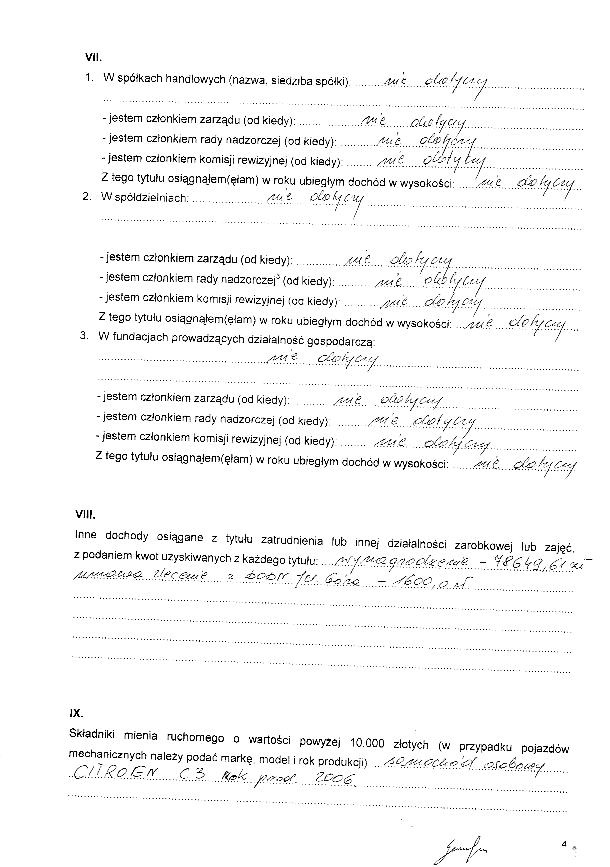 VII.
1. W spółkach handlowych (nazwa, siedziba spółki): nie dotyczy
- jestem członkiem zarządu (od kiedy): nie dotyczy
- jestem członkiem rady nadzorczej (od kiedy): nie dotyczy
- jestem członkiem komisji rewizyjnej (od kiedy): nie dotyczy
Z tego tytułu osiągnąłem(ęłam) w roku ubiegłym dochód w wysokości: nie dotyczy
2. W spółdzielniach: nie dotyczy
- jestem członkiem zarządu (od kiedy): nie dotyczy
- jestem członkiem rady nadzorczej³ (od kiedy): nie dotyczy
- jestem członkiem komisji rewizyjnej (od kiedy): nie dotyczy
Z tego tytułu osiągnąłem(ęłam) w roku ubiegłym dochód w wysokości: nie dotyczy
3. W fundacjach prowadzących działalność gospodarczą:
nie dotyczy
- jestem członkiem zarządu (od kiedy): nie dotyczy
- jestem członkiem rady nadzorczej (od kiedy): nie dotyczy
- jestem członkiem komisji rewizyjnej (od kiedy): nie dotyczy
Z tego tytułu osiągnąłem(ęłam) w roku ubiegłym dochód w wysokości: nie dotyczy
VIII.
Inne dochody osiągane z tytułu zatrudnienia lub innej działalności zarobkowej lub zajęć,
z podaniem kwot uzyskiwanych z każdego tytułu: wynagrodzenie - 78649,61 zł
umowa zlecenie z DODN Góra - 1600,0 zł
IX.
Składniki mienia ruchomego o wartości powyżej 10.000 złotych (w przypadku pojazdów
mechanicznych należy podać markę, model i rok produkcji) samochód osobowy
CITROEN C3 Rok prod. 2006
4